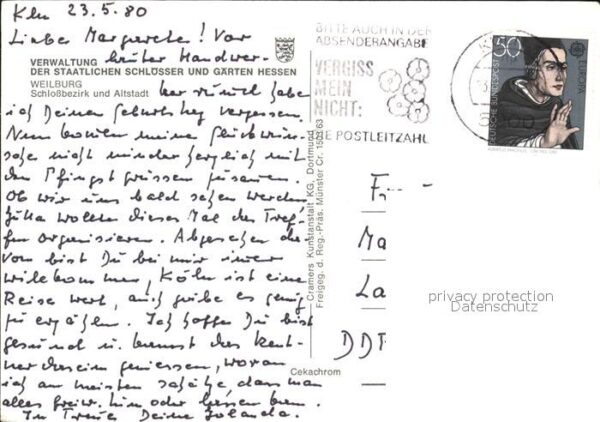 Kln 23.5.80
Liebe Margarete! Vor
lauter Handwer-
VERWALTUNG
DER STAATLICHEN SCHLÖSSER UND GÄRTEN HESSEN
WEILBURG
Schloßbezirk und Altstadt
ker habe
ich Deinen Geburtstag vergessen.
Nun kommen meine Glückwün-
sche nicht minder herzlich mit
den Pfingst grüssen zusamen.
Ob wir uns bald sehen werden
wollen dieses Mal das Tref-
fen organisieren. Abgesehen da-
von bist Du bei mir imer
willkommen, Köln ist eine
Reise wert, auch gäbe es genug
zu erzählen. Ich hoffe Du bist
gesund u. kannst das Rent-
nerdasein geniessen, woran
ich am meisten schätze, dass man
alles tun oder lassen kan.
In Treue Deine Jolanda.
BITTE AUCH IN DER
ABSENDERANGABE
VERGISS
MEIN
NICHT:
DIE POSTLEITZAHL
50
DEUTSCHE BUNDESPOST
EUROPA
Cramers Kunstanstalt KG, Dortmund
Freigeg. d. Reg.-Präs. Münster Cr. 150/63
F
Ma
La
DDR
privacy protection
Datenschutz
Cekachrom